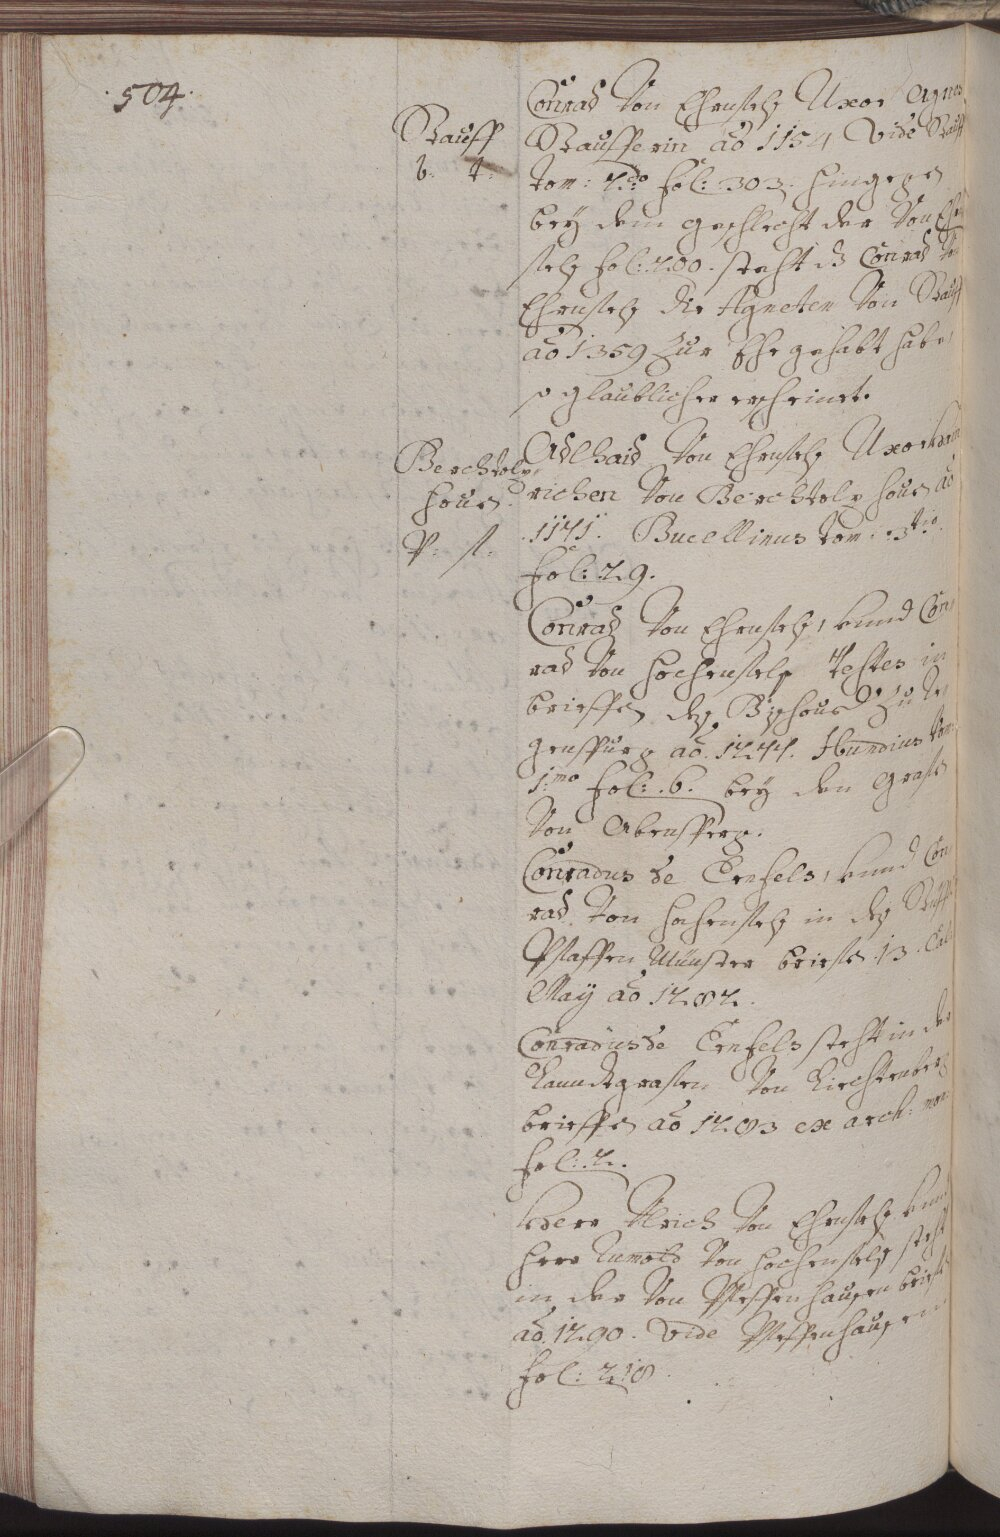 504.
Conrad Von Ehrnfelß Uxor Agnes
Stauff
Staufferin ao 1154 Vide Stauff
b: t:
tom: 2do fol: 303. hingegen
bey dem geschlecht der Von Ehrn
felß fol: 200. steht dz Conrad Von
Ehrnfelß die Agneten Von Stauff
ao 1359 Zur Ehe gehabt habe,
so glaublicher erscheinet.
Adlhaid Von Ehrnfelß Uxor
Berchtolz
richen Von Berchtolz houen ao
houen.
1171. Bucellinus tom: 3tio
P: st:
fol: 29.
Conrad Von Ehrnfelß, vnnd Con
rad Von Hochenfelß Testes in
brieffen deß Bischoue Zu Re
genspurg ao. 1244. Hundius tom:
1mo fol: 6. bey den Grafen
Von Abensperg.
Conradus de Ernfels, vnnd Con
rad Von Hohenfelß in deß Stifft
Pfaffen Münster briefen 13. Cal:
May ao 1282.
Conradus de Ernfels steht in der
Lanndtgrafen Von
brieffen ao 1283 ex arch: mon:
fol: 2.
Herr Ulrich Von Ehrnfelß vnnd
Herr Von Hochenfelß steht
in der Von Pfeffenhausen briefen
ao. 1290. Vide Pfeffenhausen
fol: 218.